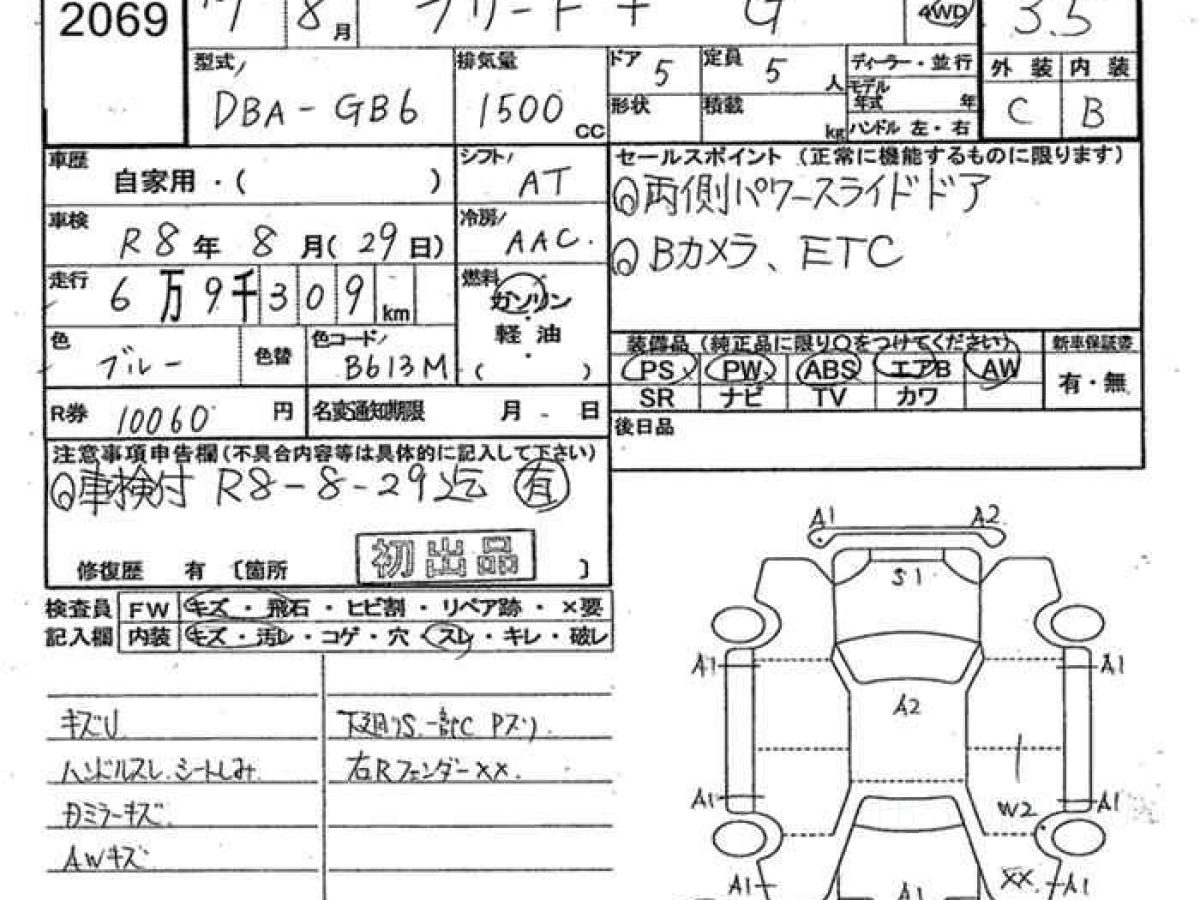 2069 8月 フリード + G 4WD 3.5
型式 DBA-GB6 排気量 1500 CC ドア 5 定員 5 人 ディーラー・並行 外装 内装
形状 積載 kg モデル年式 年 C B
ハンドル 左・右
車歴 自家用・( ) シフト AT セールスポイント (正常に機能するものに限ります)
両側パワースライドドア
車検 R8年 8月(29日) 冷房 AAC.
Bカメラ、ETC
走行 6万9千309km 燃料 ガソリン
軽油
( )
色 ブルー 色替 色コード B613M
装備品 (純正品に限り○をつけてください) 新車保証書
PS PW ABS エアB AW 有・無
SR ナビ TV カワ
R券 10060円 名変通知期限 月 日
後日品
注意事項申告欄(不具合内容等は具体的に記入して下さい)
車検付 R8-8-29迄 有
修復歴 有 〔箇所 初出品 〕
検査員 FW キズ・飛石・ヒビ割・リペア跡・×要
記入欄 内装 キズ・汚レ・コゲ・穴・スレ・キレ・破レ
キズU 下廻りS.一部C Pズリ.
ハンドルスレ.シートしみ. 右Rフェンダーxx.
Dミラーキズ.
AWキズ
A1 A2
S1
A1 A1
A2
A1 A1
W2
XX
A1 A1 A1